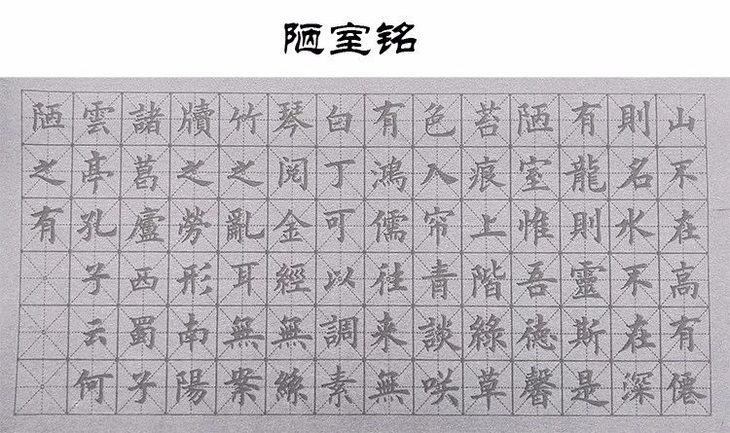 陋室铭
山不在高有僊
則名水不在深
有龍則靈斯是
陋室惟吾德馨
苔痕上階綠草
色入帘青談咲
有鴻儒往來無
白丁可以調素
琴阅金經無絲
竹之亂耳無案
牘之勞形南陽
諸葛廬西蜀子
雲亭孔子云何
陋之有